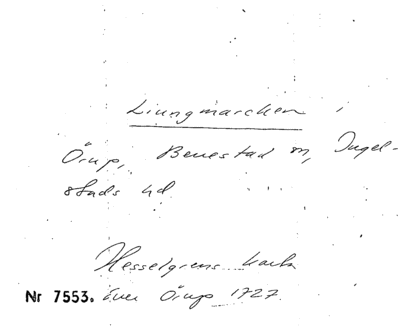 Liungmarcken,
Örup, Benestad sn, Ingel-
stads hd
Hesselgrens karta
Nr 7553. över Örup 1727.